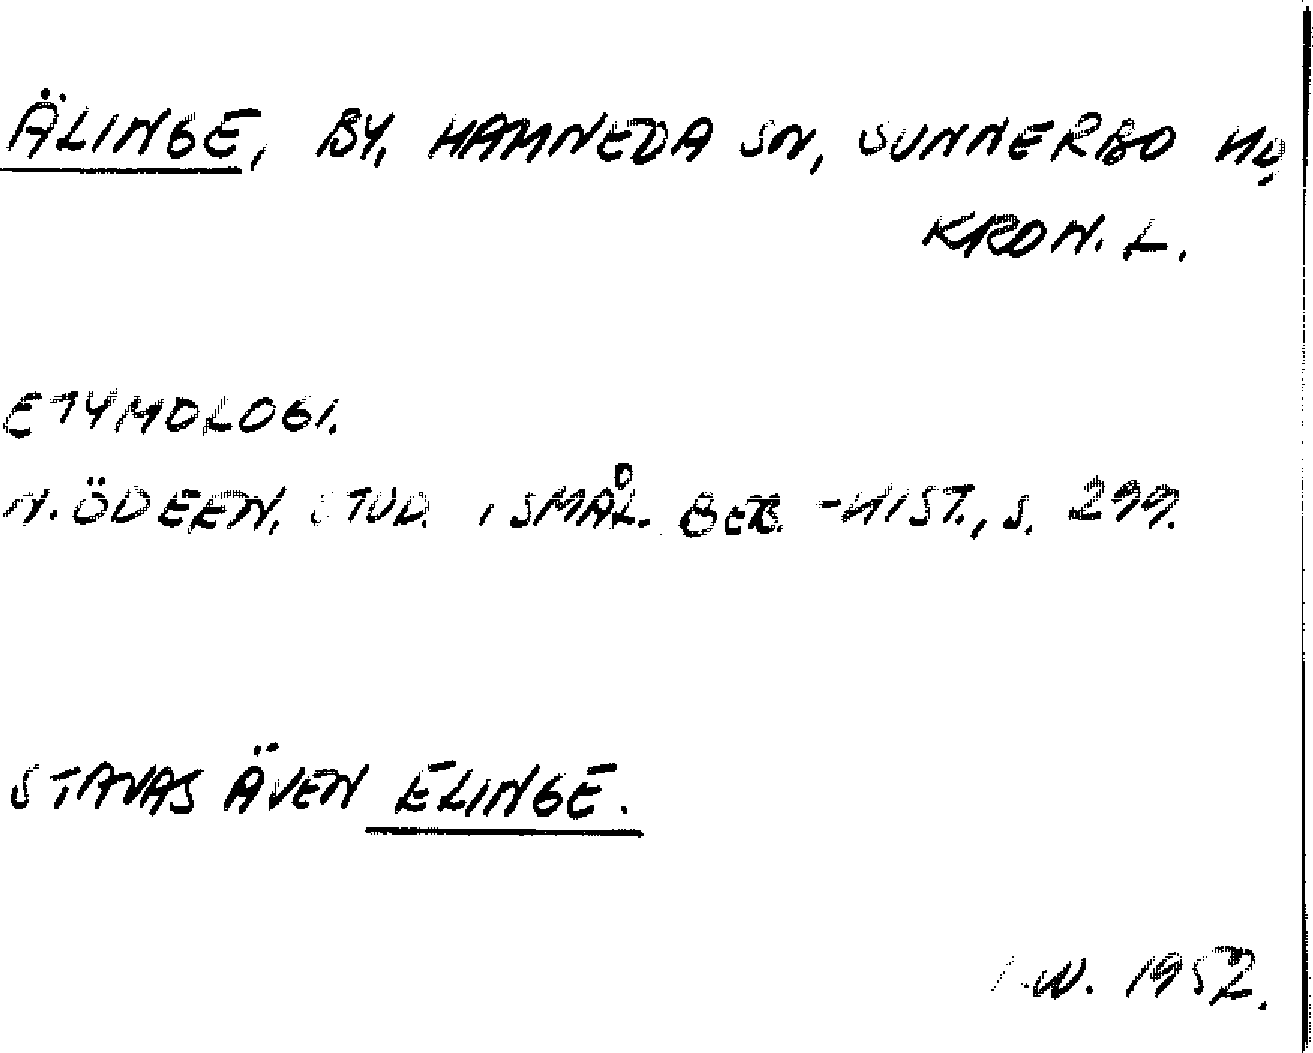 ÄLINGE, BY, HAMNEDA SN, SUNNERBO HD,
KRON. L.
ETYMOLOGI.
N. ÖDEEN, STUD. I SMÅL. BEB. -HIST., S. 299.
STAVAS ÄVEN ELINGE.
1952.